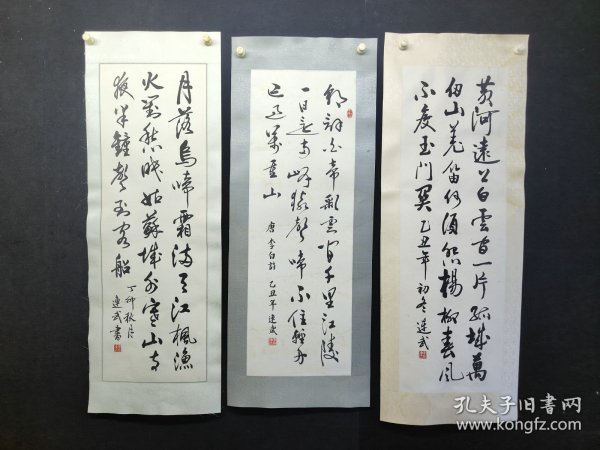 月落烏啼霜滿天江楓漁
火對愁眠姑蘇城外寒山寺
夜半鐘聲到客船
丁卯秋月
達武書
朝辭白帝彩雲間千里江陵
一日還兩岸猿聲啼不住輕舟
已過萬重山
唐李白詩 乙丑年達武
黄河遠上白雲間一片孤城萬
仞山羌笛何須怨楊柳春風
不度玉門關 乙丑年初冬達武
孔夫子旧书网
www.kongfz.com